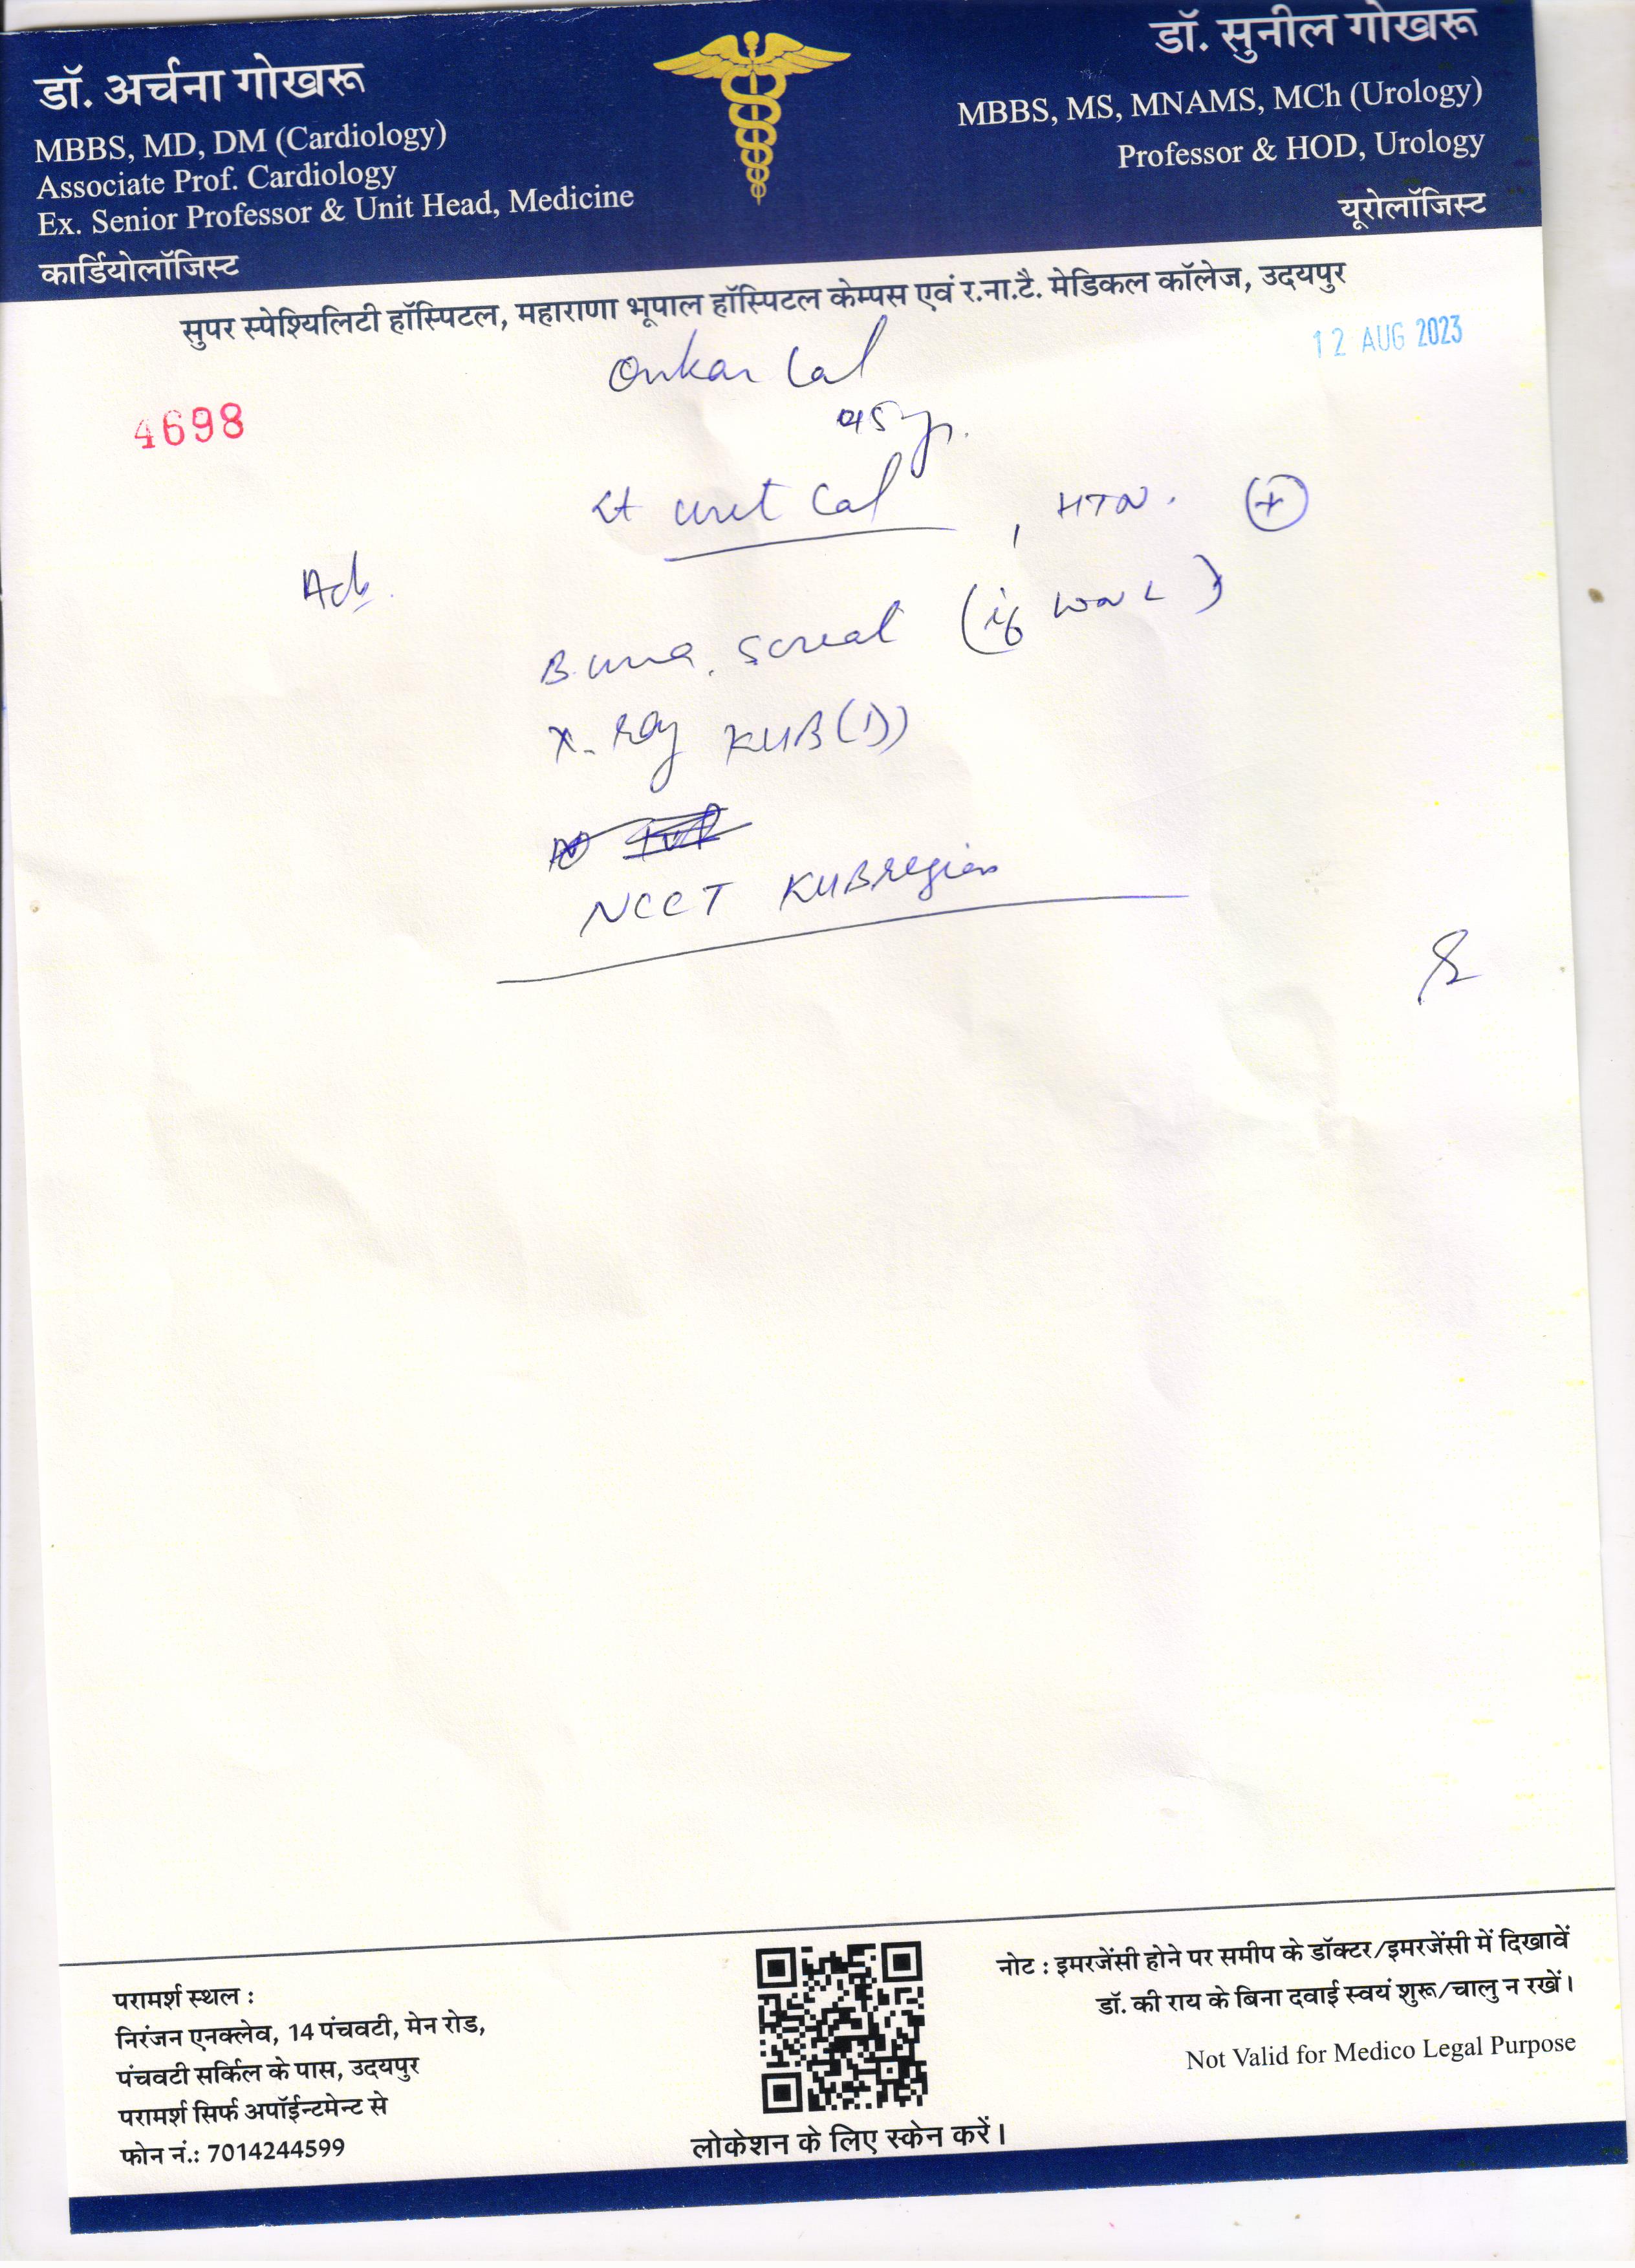 डॉ. अर्चना गोखरू
MBBS, MD, DM (Cardiology)
Associate Prof. Cardiology
Ex. Senior Professor & Unit Head, Medicine
कार्डियोलॉजिस्ट
डॉ. सुनील गोखरू
MBBS, MS, MNAMS, MCh (Urology)
Professor & HOD, Urology
यूरोलॉजिस्ट
सुपर स्पेश्यिलिटी हॉस्पिटल, महाराणा भूपाल हॉस्पिटल केम्पस एवं र.ना.टै. मेडिकल कॉलेज, उदयपुर
12 AUG 2023
4698
Onkar Lal
45 yr.
Lt uret Cal, HTN. (+)
Adv.
B. urea, S creat (if WNL)
X-Ray KUB (D)
NCCT KUB region
परामर्श स्थल :
निरंजन एनक्लेव, 14 पंचवटी, मेन रोड,
पंचवटी सर्किल के पास, उदयपुर
परामर्श सिर्फ अपॉईन्टमेन्ट से
फोन नं.: 7014244599
लोकेशन के लिए स्केन करें।
नोट : इमरजेंसी होने पर समीप के डॉक्टर/इमरजेंसी में दिखावें
डॉ. की राय के बिना दवाई स्वयं शुरू/चालु न रखें।
Not Valid for Medico Legal Purpose